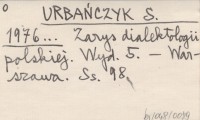 URBAŃCZYK S.
1976... Zarys dialektologii
polskiej. Wyd. 5. — War-
szawa. Ss. 98.